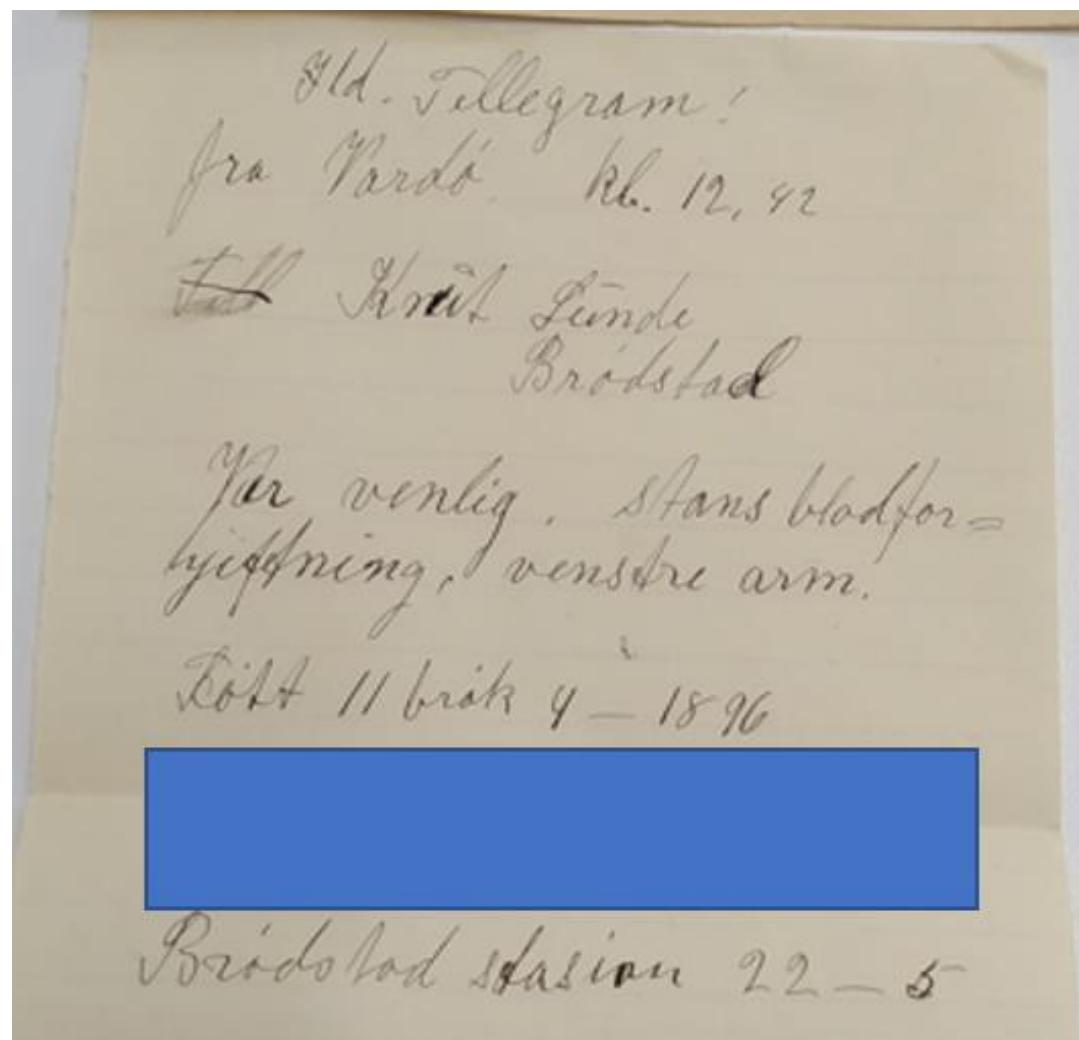 Ild. Tellegram!
fra Vardó. kl. 12,42
Till Knut Lunde
Bródstad
Vær venlig. stans blodfor=
gjiftning, venstre arm.
Fótt 11 brók 4 – 1896
Bródstad stasion 22 – 5